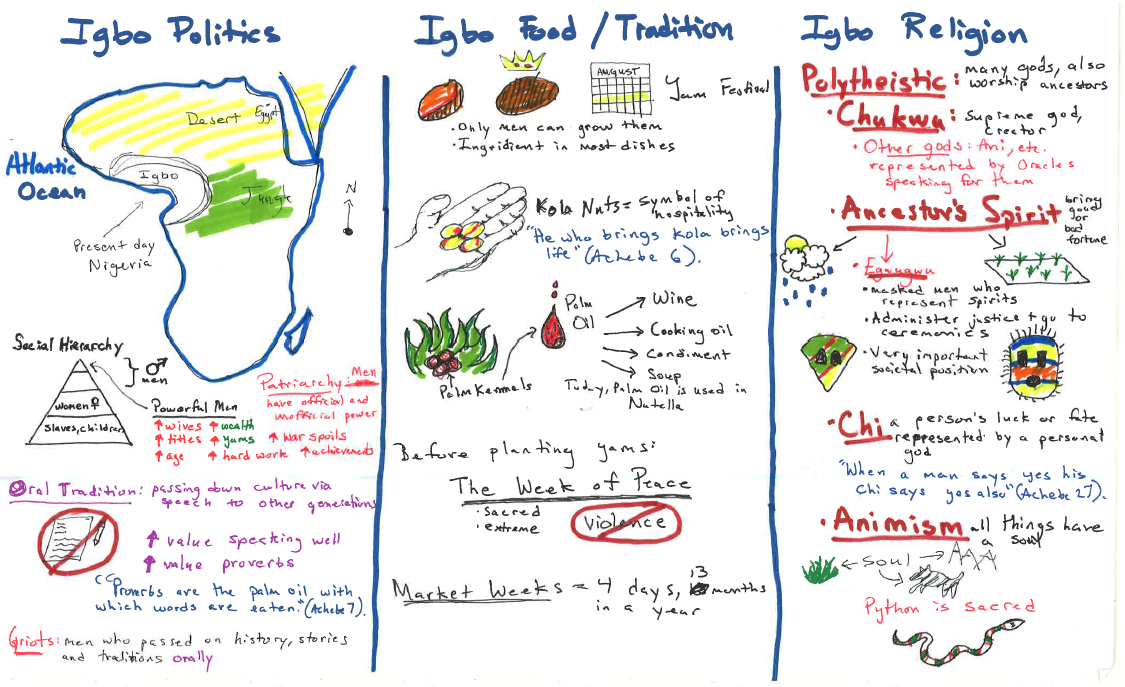 Igbo Politics
Desert
Egypt
Atlantic
Ocean
Igbo
Jungle
N
Present day
Nigeria
Social Hierarchy
men
women ♀
Slaves, children
Powerful Men
↑ wives ↑ wealth
↑ titles ↑ yams ↑ war spoils
↑ age ↑ hard work ↑ achievements
Patriarchy: Men
have official and
unofficial power
Oral Tradition: passing down culture via
speech to other generations
↑ value speaking well
↑ value proverbs
"Proverbs are the palm oil with
which words are eaten." (Achebe 7).
Griots: men who passed on history, stories
and traditions orally
Igbo Food / Tradition
AUGUST
Yam Festival
• Only men can grow them
• Ingridient in most dishes
Kola Nuts = symbol of
hospitality
"He who brings kola brings
life" (Achebe 6).
Palm
Oil
Wine
Cooking oil
Condiment
Soup
Palm Kernels
Today, Palm Oil is used in
Nutella
Before planting yams:
The Week of Peace
• sacred
• extreme
violence
Market Weeks = 4 days, 13 months
in a year
Igbo Religion
Polytheistic: many gods, also
worship ancestors
• Chukwu: supreme god,
creator
• Other gods: Ani, etc.
represented by Oracles
speaking for them
• Ancestor's Spirit bring
good or
bad
fortune
• Egwugwu
• masked men who
represent spirits
• Administer justice + go to
ceremonies
• Very important
societal position
• Chi a person's luck or fate
represented by a personal
god
"When a man says yes his
chi says yes also" (Achebe 27).
• Animism all things have
a soul
Soul
Python is sacred